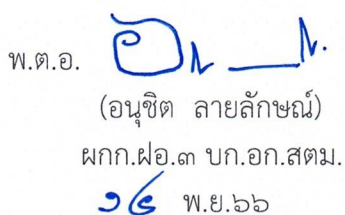 พ.ต.อ.
(อนุชิต ลายลักษณ์)
ผกก.ฝอ.๓ บก.อก.สตม.
๑๔ พ.ย.๖๖